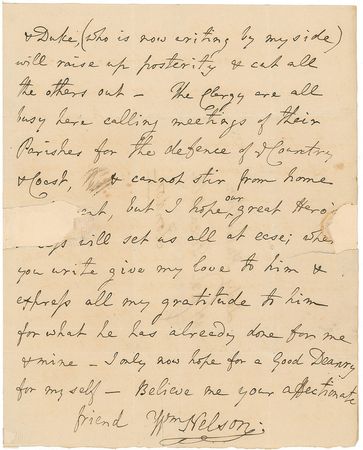 & Duke, (who is now writing by my side)
will raise up posterity & cut all
the others out — The Clergy are all
busy here calling meetings of their
Parishes for the defence of y Country
& Coast, & cannot stir from home
but I hope our great Hero's
will set us all at ease; when
you write give my love to him &
express all my gratitude to him
for what he has already done for me
& mine — I only now hope for a Good Deanry
for myself — Believe me your affectionate
friend Wm Nelson: